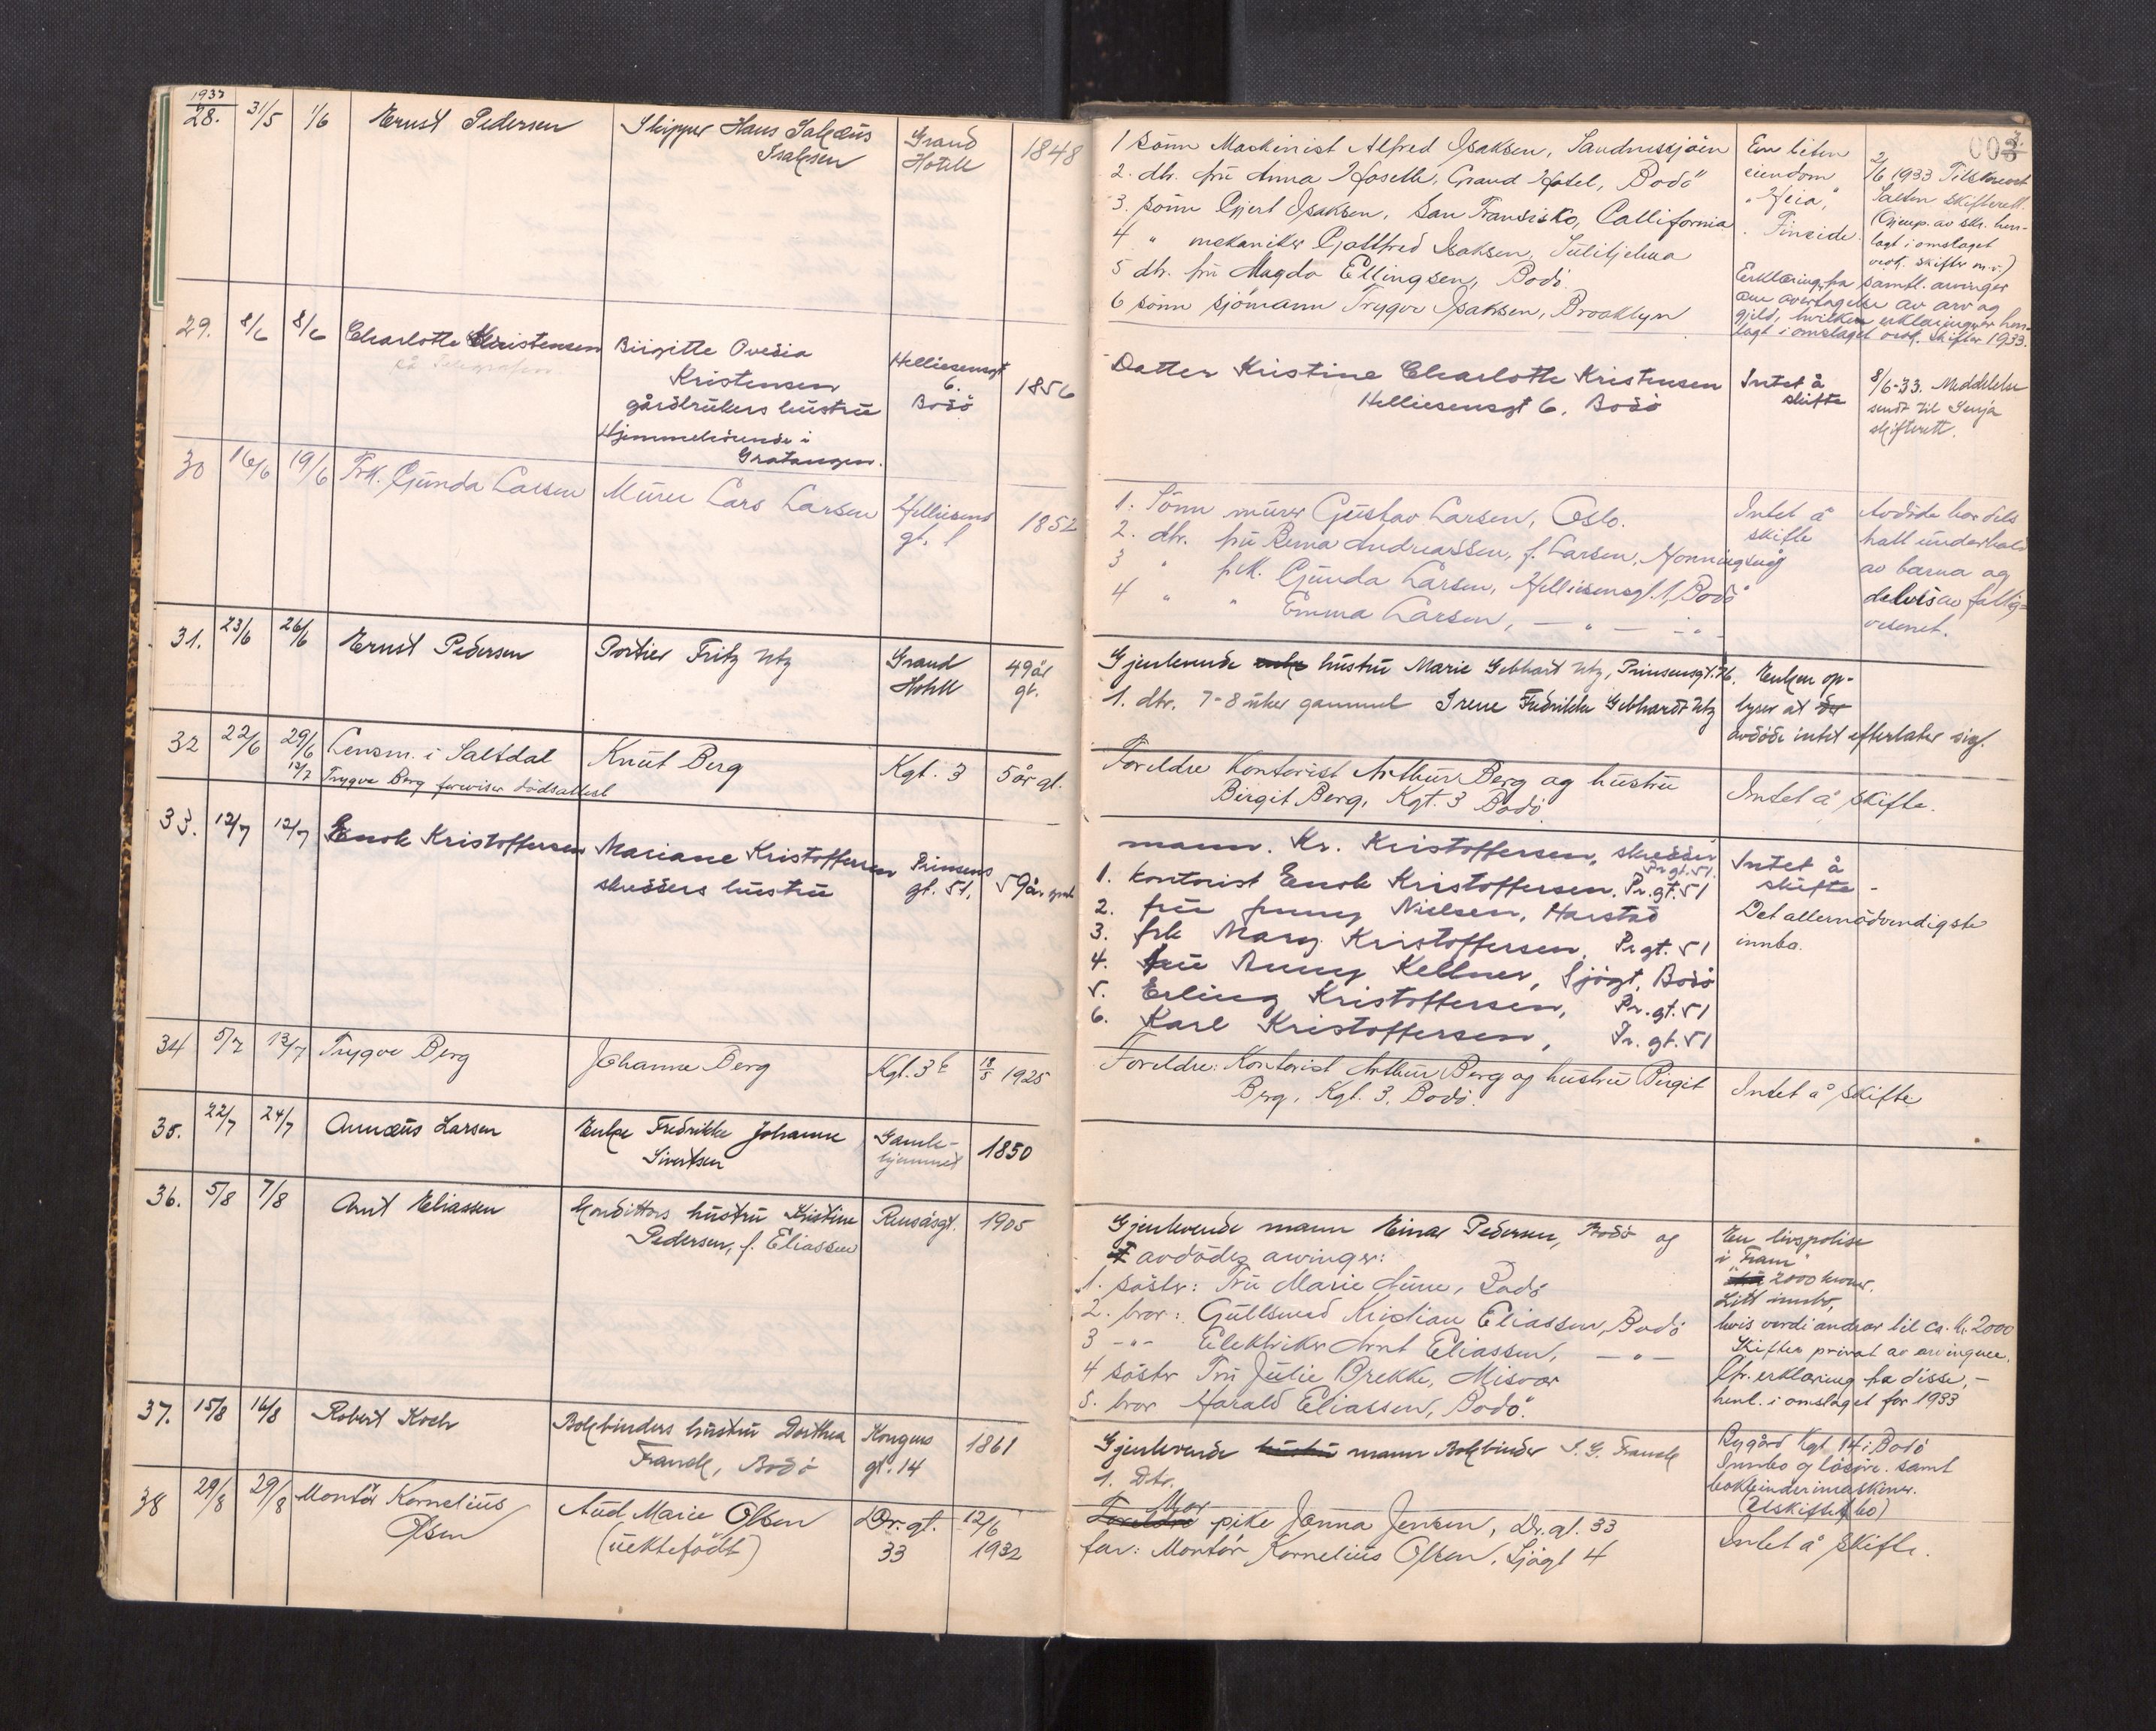 1933
28. 31/5 1/6 Ernst Pedersen Skipper Hans Grand 1848
Isaksen Hotell
29. 8/6 8/6 Charlotte Kristensen Birgitte Ovedia Helliesensgt
på Telegrafen Kristensen 6. 1856
gårdbrukers hustru Bodö
Hjemmehörende i
Gratangen.
30 16/6 19/6 Frk. Gunda Larsen Murer Lars Larsen Helliesens 1852
gt. 1
31. 23/6 26/6 Ernst Pedersen Portier Fritz Utz Grand 49 år
Hotell gl.
32 22/6 29/6 Lensm. i Saltdal Knut Berg Kgt. 3 5 år gl.
12/7 Trygve Berg foreviser dödsattest
33. 12/7 12/7 Enok Kristoffersen Mariane Kristoffersen Prinsens 59 år
skredders hustru gt. 51,
34 5/7 13/7 Trygve Berg Johanne Berg Kgt. 3 18/5 1925
35. 22/7 24/7 Annæus Larsen Enke Fredrikke Johanne Gamle- 1850
Sivertsen hjemmet
36. 5/8 7/8 Arnt Eliassen Konditors hustru Kristine Rensåsgt. 1905
Pedersen, f. Eliassen
37. 15/8 16/8 Robert Koch Bokbinders hustru Dorthea Kongens 1861
Franck, Bodö gt. 14
38 29/8 29/8 Montör Kornelius Aud Marie Olsen Dr. gt. 12/6
Olsen (uektefödt) 33 1932
003
1 sönn Maskinist Alfred Isaksen, Sandnessjöen En liten 2/6 1933 Tilskrevet
2. dtr. fru Anna Hoseth, Grand Hotel, Bodö eiendom Salten skifterett.
3. sönn Gjert Isaksen, San Fransisko, Callifornia "Heia", (Gjenp. av skr. hen-
4 " mekaniker Gottfred Isaksen, Sulitjelma Fineide. lagt i omslaget
5 dtr. fru Magda Ellingsen, Bodö. vedr. skifter m.v.)
6 sönn sjömann Trygve Isaksen, Brooklyn Erklæring fra samtl. arvinger
om overtagelse av arv og
gjeld, hvilken erklæring er hen-
lagt i omslaget vedr. Skifter 1933.
Datter Kristine Charlotte Kristensen Intet å 8/6-33. Meddelelse
Helliesensgt 6, Bodö skifte sendt til Senja
skifterett.
1. Sönn murer Gustav Larsen, Oslo. Intet å Avdöde har dels
2. dtr. fru Andreassen, f. Larsen, Honningsvåg skifte hatt underhold
3 " frk. Gunda Larsen, Helliesensgt. 1, Bodö av barna og
4 " " Emma Larsen, — " — delvis av fattig-
vesenet.
Gjenlevende enke hustru Marie Gebhart Utz, Prinsensgt. Enken op-
1. dtr. 7-8 uker gammel Irene Fredrikke Gebhardt Utz lyser at der
avdöde intet efterlater sig.
Foreldre Kontorist Arthur Berg og hustru Intet å skifte.
Birgit Berg, Kgt. 3 Bodö.
mann. Kr. Kristoffersen, skredder Pr. gt. 51. Intet å
1. kontorist Enok Kristoffersen. Pr. gt. 51 skifte -
2. fru Nielsen, Harstad Det allernödvendigste
3. frk Mary Kristoffersen, Pr gt. 51 innbo.
4. fru Anny Kellner, Sjögt. Bodö
5. Erling Kristoffersen, Pr. gt. 51
6. Karl Kristoffersen, Pr. gt. 51
Foreldre: Kontorist Arthur Berg og hustru Birgit Intet å skifte
Berg, Kgt. 3, Bodö.
Gjenlevende mann Einar Pedersen, Bodö og En livspolise
avdödes arvinger: i "Fram"
1. söster: Fru Marie Aune, Bodö 2000 kroner.
2. bror: Gullsmed Kristian Eliassen, Bodö Litt innbo,
3 -"- Elektriker Arnt Eliassen, — " — hvis verdi andrar til ca. kr. 2000
4 söster Fru Julie Brekke, Misvær Skiftes privat av arvingene,
5. bror Harald Eliassen, Bodö. Cfr. erklæring fra disse,-
henl. i omslaget for 1933
Gjenlevende hustru mann Bokbinder S. G. Franck Bygård Kgt. 14 i Bodö
1. Dtr. Innbo og lösöre. samt
bokbindermaskiner.
(Uskiftet bo)
Foreldre Mor pike Janna Jensen, Dr. gt. 33 Intet å skifte.
far: Montör Kornelius Olsen, Sjögt 4